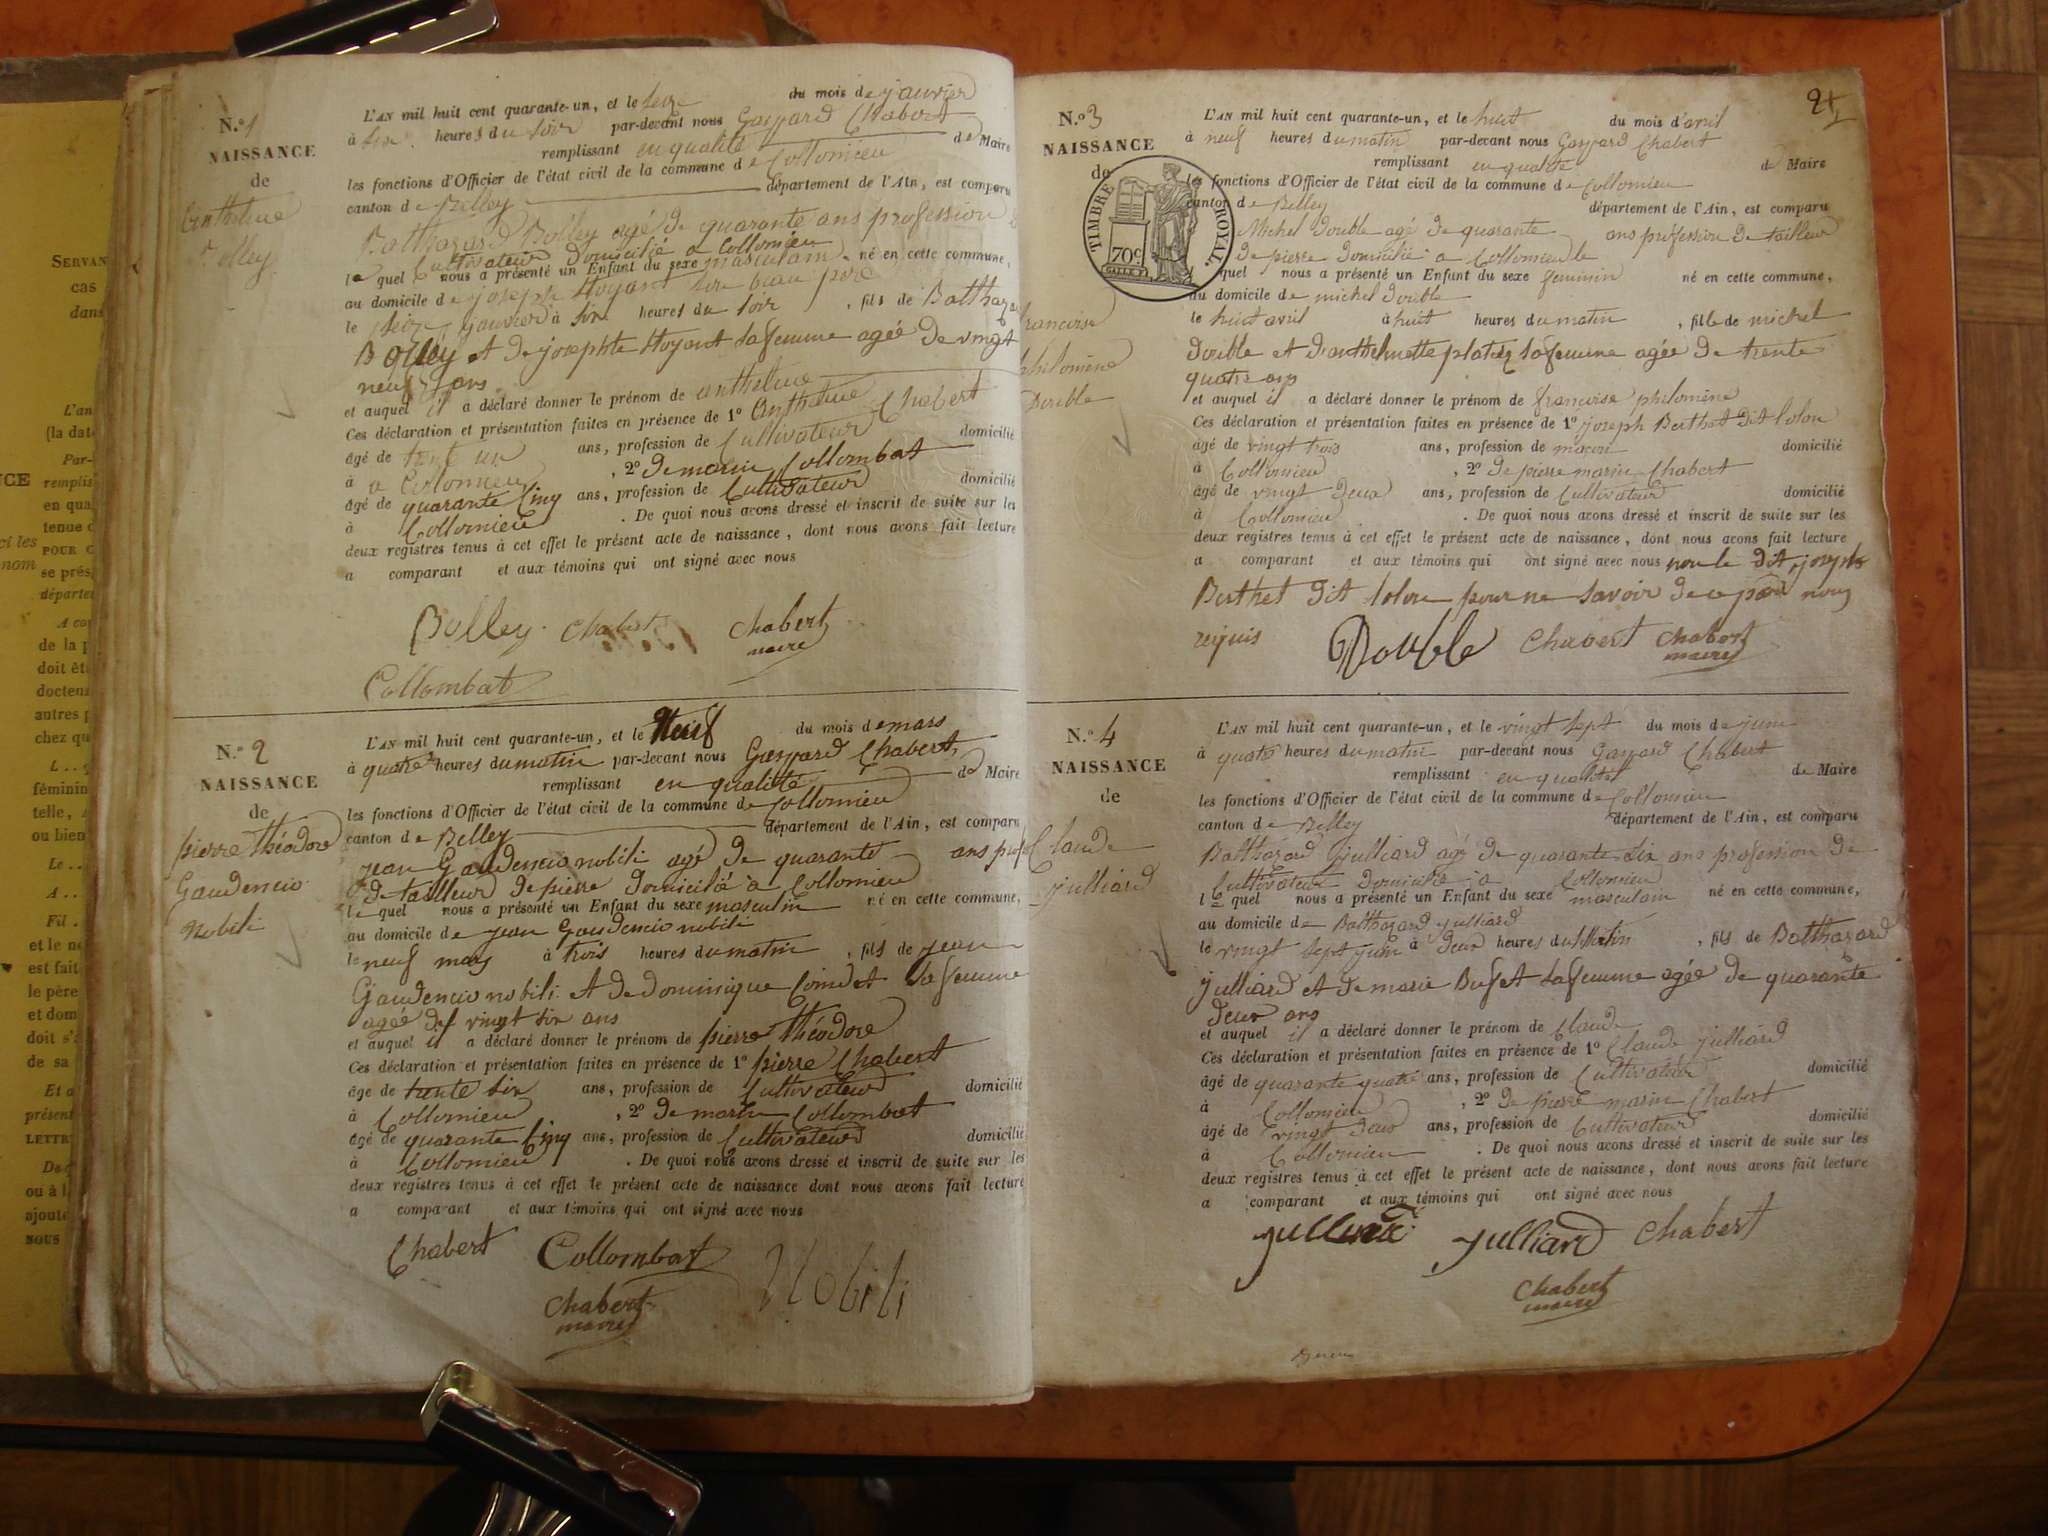 N.o 1
NAISSANCE
de
Anthelme
Bolley
L'AN mil huit cent quarante-un, et le seize du mois de janvier
à six heures du soir par-devant nous Gaspard Chabert
remplissant en qualité de Maire
les fonctions d'Officier de l'état civil de la commune de Collomieu
canton de Belley département de l'Ain, est comparu
Balthazard Bolley agé de quarante ans profession
Cultivateur domicilié a Collomieu
le quel nous a présenté un Enfant du sexe masculain né en cette commune,
au domicile de joseph Hoyant son beau pere
le seize janvier à six heures du soir, fils de Balthazard
Bolley et de josephte Hoyant sa femme agée de vingt
neuf ans
et auquel il a déclaré donner le prénom de anthelme
Ces déclaration et présentation faites en présence de 1o Anthelme Chabert
âgé de trente un ans, profession de Cultivateur domicilié
à a Collomieu, 2o de marin Collombat
âgé de quarante Cinq ans, profession de Cultivateur domicilié
à Collomieu. De quoi nous avons dressé et inscrit de suite sur les
deux registres tenus à cet effet le présent acte de naissance, dont nous avons fait lecture
a comparant et aux témoins qui ont signé avec nous
Bolley Chabert Chabert
maire
Collombat
N.o 2
NAISSANCE
de
pierre théodore
Gaudencio
Nobili
L'AN mil huit cent quarante-un, et le Neuf du mois de mars
à quatre heures du matin par-devant nous Gaspard Chabert,
remplissant en qualité de Maire
les fonctions d'Officier de l'état civil de la commune de Collomieu
canton de Belley département de l'Ain, est comparu
jean Gaudencio nobili agé de quarante ans prof
de tailleur de pierre domicilié a Collomieu
le quel nous a présenté un Enfant du sexe masculin né en cette commune,
au domicile de jean Gaudencio nobili
le neuf mars à trois heures du matin, fils de jean
Gaudencio nobili et de dominique Coindet sa femme
agée de vingt six ans
et auquel il a déclaré donner le prénom de pierre théodore
Ces déclaration et présentation faites en présence de 1o pierre Chabert
âge de trente six ans, profession de Cultivateur domicilié
à Collomieu, 2o de marin Collombat
âgé de quarante Cinq ans, profession de Cultivateur domicilié
à Collomieu. De quoi nous avons dressé et inscrit de suite sur les
deux registres tenus à cet effet le présent acte de naissance dont nous avons fait lecture
a comparant et aux témoins qui ont signé avec nous
Chabert Collombat Nobili
Chabert
maire
N.o 3
NAISSANCE
de
francoise
philomene
Double
TIMBRE ROYAL.
70c
L'AN mil huit cent quarante-un, et le huit du mois d'avril
à neuf heures du matin par-devant nous Gaspard Chabert
remplissant en qualité de Maire
les fonctions d'Officier de l'état civil de la commune de Collomieu
canton de Belley département de l'Ain, est comparu
Michel Double agé de quarante ans profession de tailleur
de pierre domicilié a Collomieu le
quel nous a présenté un Enfant du sexe feminin né en cette commune,
au domicile de michel double
le huit avril à huit heures du matin, fille de michel
double et d'anthelmette sa femme agée de trente
quatre ans
et auquel il a déclaré donner le prénom de francoise philomene
Ces déclaration et présentation faites en présence de 1o joseph Berthet dit lolon
âgé de vingt trois ans, profession de macon domicilié
à Collomieu, 2o de pierre marin Chabert
âgé de vingt deux ans, profession de Cultivateur domicilié
à Collomieu. De quoi nous avons dressé et inscrit de suite sur les
deux registres tenus à cet effet le présent acte de naissance, dont nous avons fait lecture
a comparant et aux témoins qui ont signé avec nous non le dit joseph
Berthet dit lolon pour ne savoir de ce par nous
requis Double Chabert Chabert
maire
N.o 4
NAISSANCE
de
Claude
julliard
L'AN mil huit cent quarante-un, et le vingt sept du mois de juin
à quatre heures du matin par-devant nous Gaspard Chabert
remplissant en qualité de Maire
les fonctions d'Officier de l'état civil de la commune de Collomieu
canton de Belley département de l'Ain, est comparu
Balthazard julliard agé de quarante six ans profession de
Cultivateur domicilié a Collomieu
le quel nous a présenté un Enfant du sexe masculain né en cette commune,
au domicile de Balthazard julliard
le vingt sept juin à deux heures du Matin, fils de Balthazard
julliard et de marie Buffet sa femme agée de quarante
deux ans
et auquel il a déclaré donner le prénom de Claude
Ces déclaration et présentation faites en présence de 1o Claude julliard
âgé de quarante quatre ans, profession de Cultivateur domicilié
à Collomieu, 2o de pierre marin Chabert
âgé de vingt deux ans, profession de Cultivateur domicilié
à Collomieu. De quoi nous avons dressé et inscrit de suite sur les
deux registres tenus à cet effet le présent acte de naissance, dont nous avons fait lecture
a comparant et aux témoins qui ont signé avec nous
julliard julliard Chabert
Chabert
maire